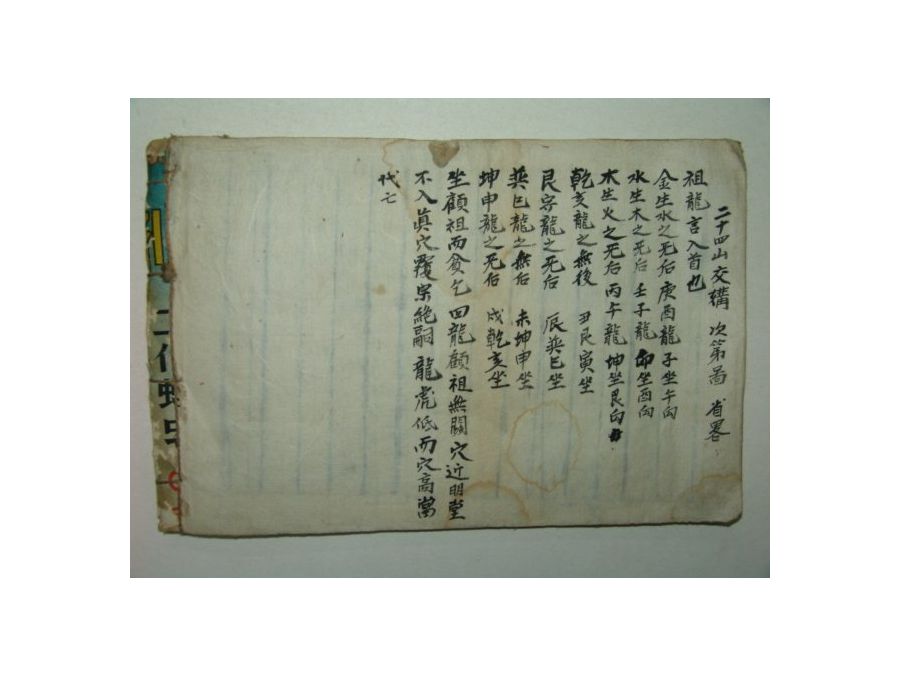 二十四山交媾 次第啚 省畧
祖龍言入首也
金生水之死后 庚酉龍 子坐午向
水生木之死后 壬子龍 卯坐酉向
木生火之死后 丙午龍 坤坐艮向
乾亥龍之無後 丑艮寅坐
艮寅龍之死后 辰巽巳坐
巽巳龍之無后 未坤申坐
坤申龍之死后 戌乾亥坐
坐顧祖而貧乞 回龍顧祖無關 穴近明堂
不入眞穴 覆宗絶嗣 龍虎低而穴高當
代亡